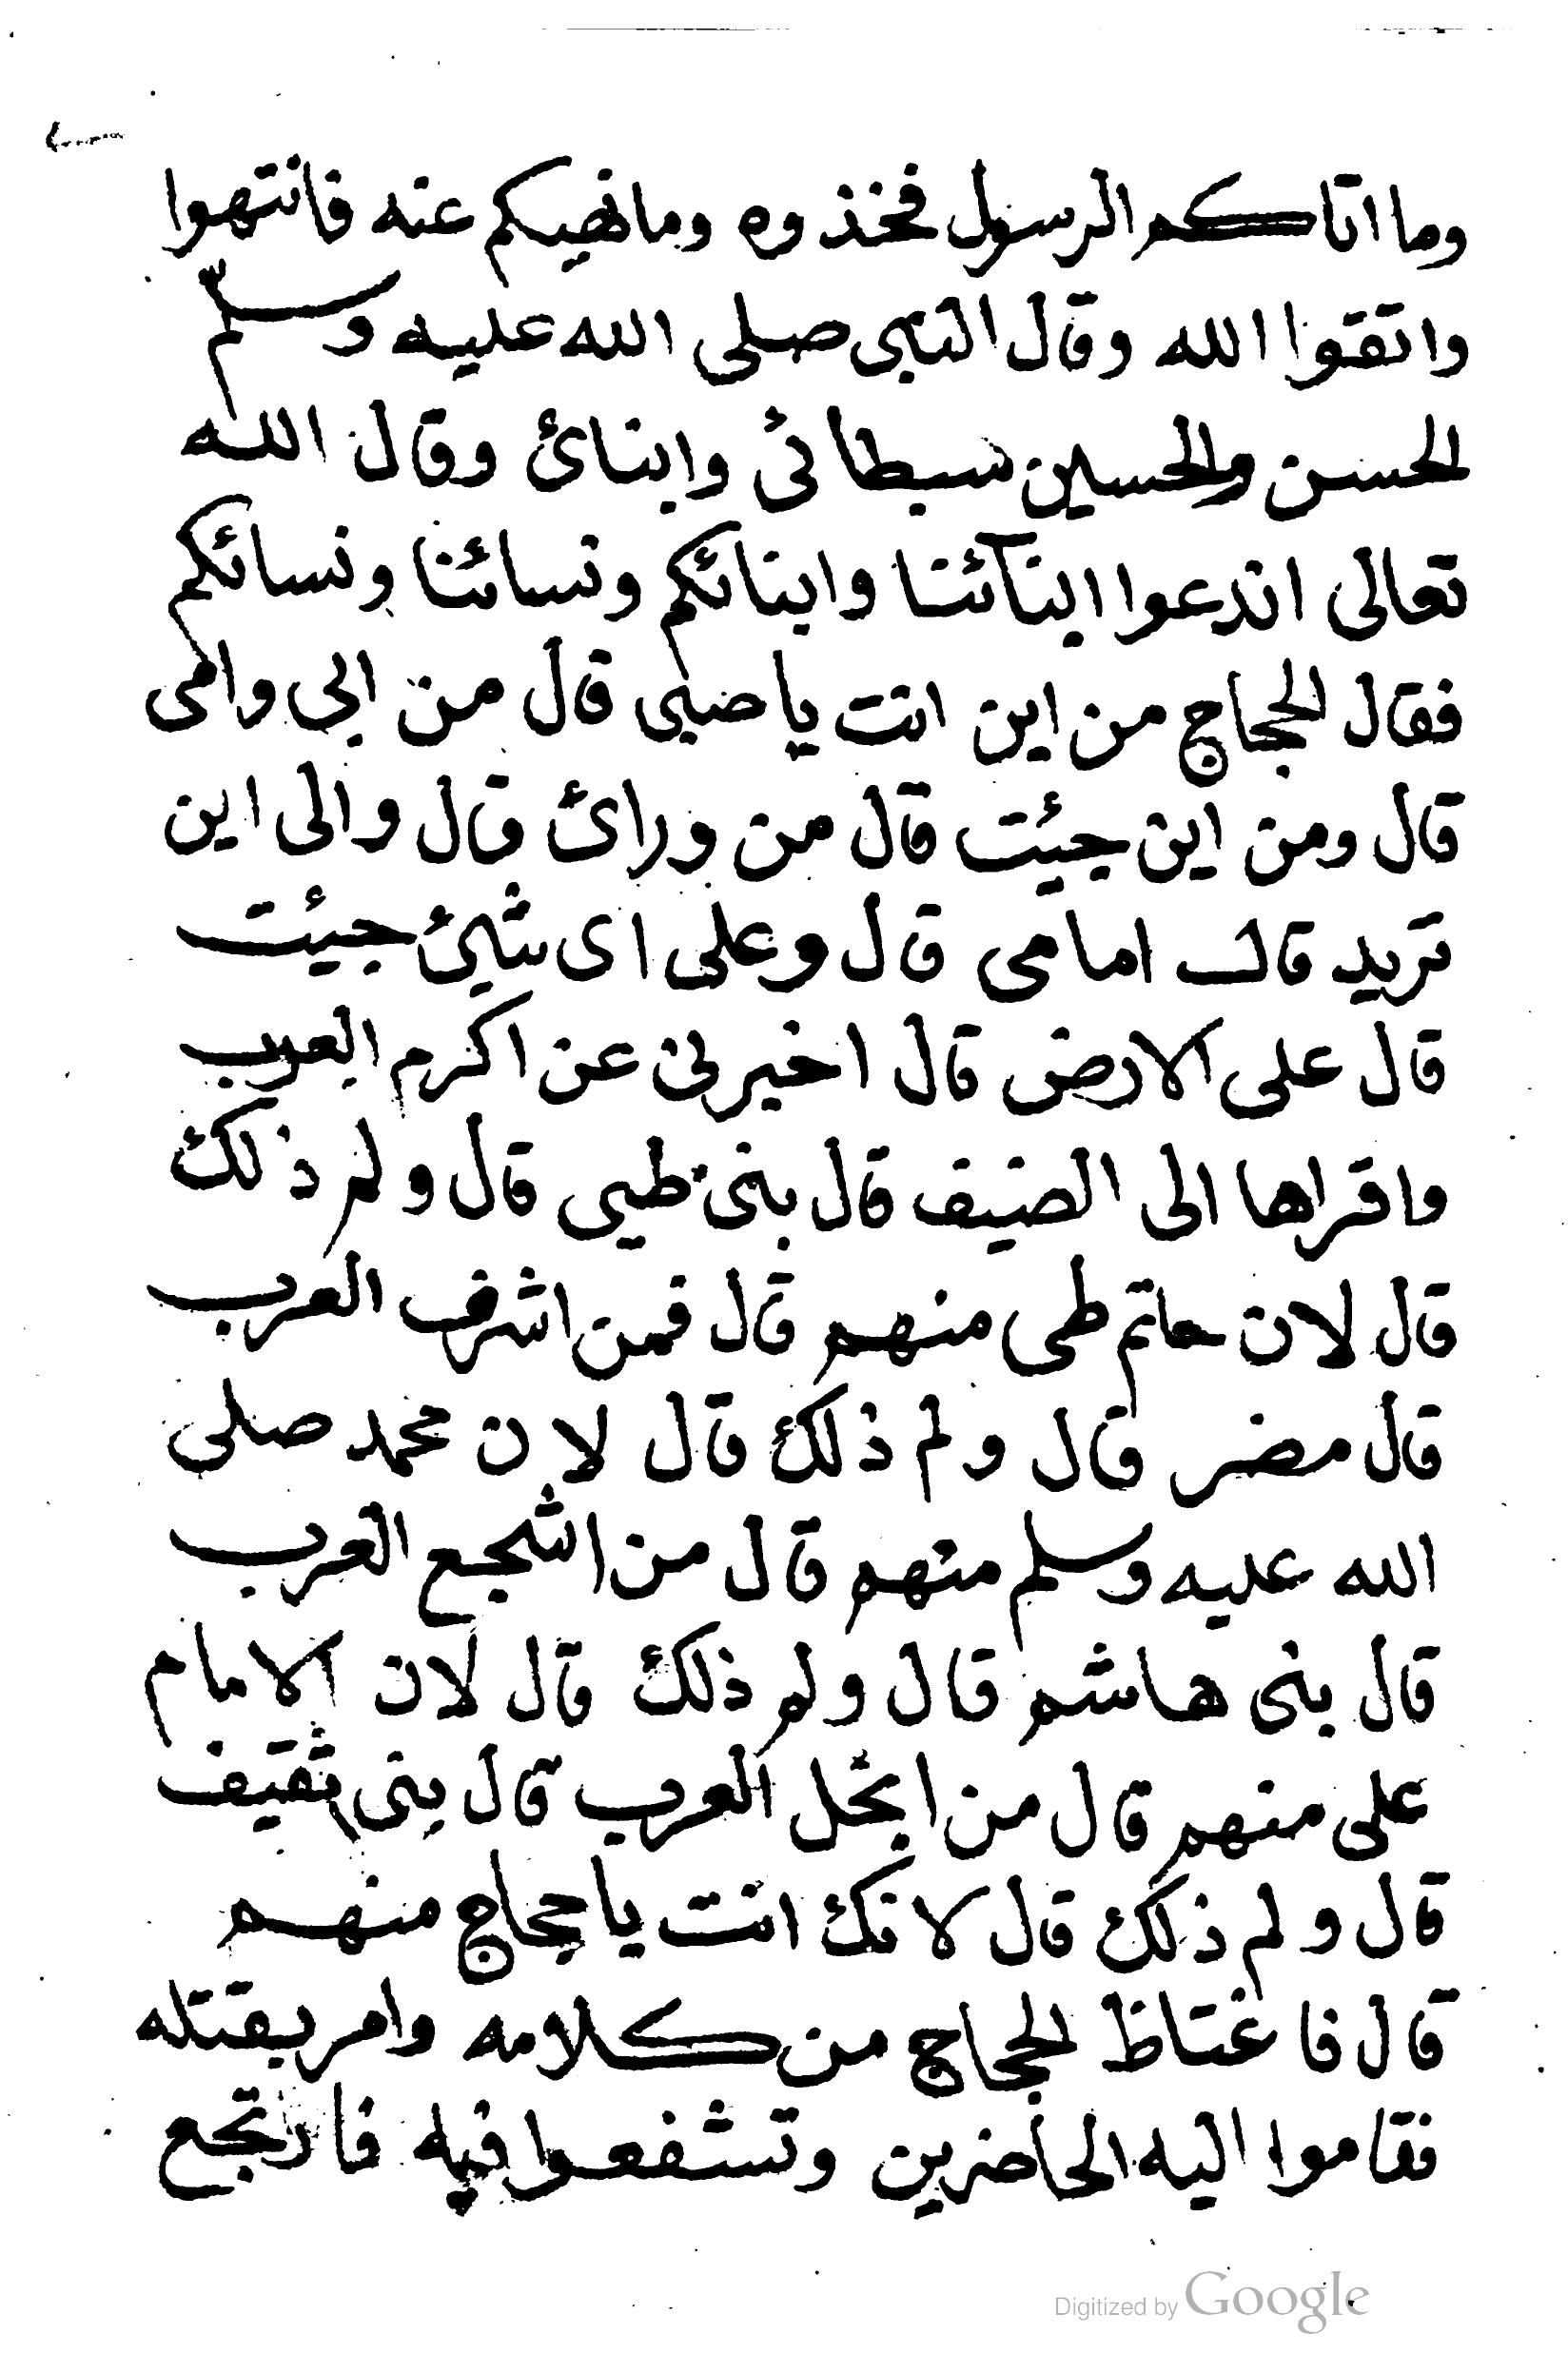 وما اتاكم الرسول فخذوه وما نهيكم عنه فانتهوا
واتقوا الله وقال النبي صلى الله عليه وسلّم
الحسن والحسين سبطائي وابنائ وقال الله
تعالى اندعوا ابنآئنا وابنائكم ونسائنا ونسائكم
فقال الحجاج من اين انت يا صبي قال من ابي وامي
قال ومن اين جيئت قال من ورائ قال والى اين
تريد قال امامي قال وعلى اى شيئ جيئت
قال على الارض قال اخبرني عن اكرم العرب
واقراها الى الضيف قال بنى طيي قال ولم ذلك
قال لان حاتم طى منهم قال فمن اشرف العرب
قال مضر قال ولم ذلك قال لان محمد صلى
الله عليه وسلم منهم قال من اشجع العرب
قال بنى هاشم قال ولم ذلك قال لان الامام
على منهم قال من ابخل العرب قال بنى ثقيف
قال ولم ذلك قال لانك انت يا حجاج منهم
قال فاغتاظ الحجاج من كلامه وامر بقتله
فقاموا اليه الحاضرين وتشفعوا فيه فارتجع
Digitized by Google